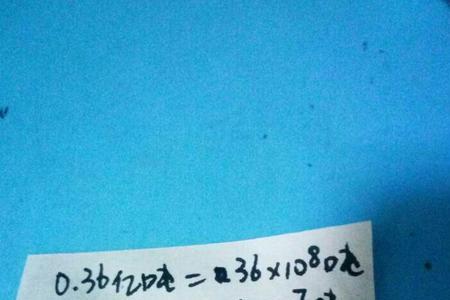 0.36亿吨=0.36×10⁸吨